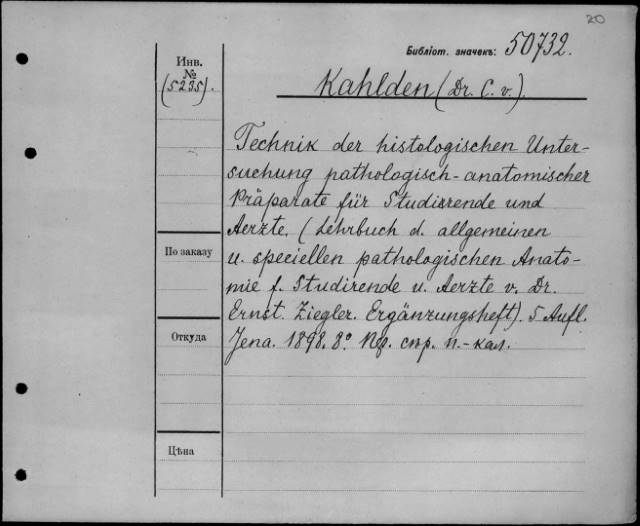 20
Библіот. значекъ: 50732.
Инв.
№
(5235).
Kahlden (Dr. C. v.).
Technik der histologischen Unter-
suchung pathologisch-anatomischer
Präparate für Studierende und
Aerzte. (Lehrbuch d. allgemeinen
u. speciellen pathologischen Anato-
mie f. Studirende u. Aerzte v. Dr.
Ernst. Ziegler. Ergänzungsheft). 5 Aufl.
Jena. 1898. 8° стр. п.-кал.
По заказу
Откуда
Цѣна